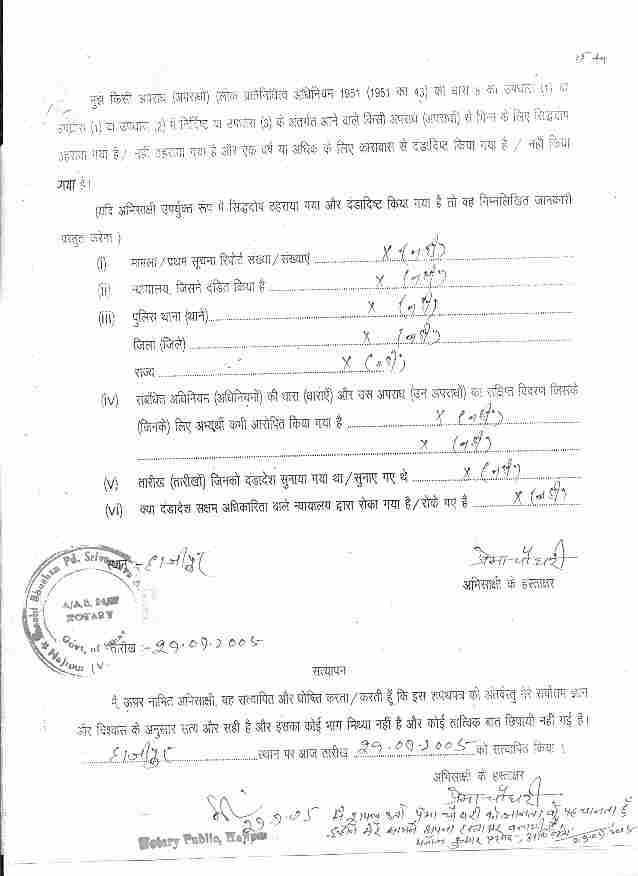 मुझे किसी अपराध (अपराधों) (लोक प्रतिनिधित्व अधिनियम 1951 (1951 का 43) की धारा 8 की उपधारा (1) या
उपधारा (1) या उपधारा (2) में निर्दिष्ट या उपधारा (3) के अंतर्गत आने वाले किसी अपराध (अपराधों) से भिन्न के लिए सिद्धदोष
ठहराया गया है / नहीं ठहराया गया है और एक वर्ष या अधिक के लिए कारावास से दंडादिष्ट किया गया है / नहीं किया
गया है।
(यदि अभिसाक्षी उपर्युक्त रूप में सिद्धदोष ठहराया गया और दंडादिष्ट किया गया है तो वह निम्नलिखित जानकारी
प्रस्तुत करेगा )
(i) मामला / प्रथम सूचना रिपोर्ट संख्या / संख्याएं X (नहीं)
(ii) न्यायालय, जिसने दंडित किया है X (नहीं)
(iii) पुलिस थाना (थाने) X (नहीं)
जिला (जिले) X (नहीं)
राज्य X (नहीं)
(iv) संबंधित अधिनियम (अधिनियमों) की धारा (धाराएँ) और उस अपराध (उन अपराधों) का संक्षिप्त विवरण जिसके
(जिनके) लिए अभ्यर्थी कभी आरोपित किया गया है X (नहीं)
X (नहीं)
(v) तारीख (तारीखों) जिनको दंडादेश सुनाया गया था / सुनाए गए थे X (नहीं)
(vi) क्या दंडादेश सक्षम अधिकारिता वाले न्यायालय द्वारा रोका गया है / रोके गए है X (नहीं)
स्थान :- हाजीपुर
प्रेमा चौधरी
अभिसाक्षी के हस्ताक्षर
Bhushan Pd.
NOTARY
Govt. of
Hajipur
तारीख :- 29.09.2005
सत्यापन
मैं, ऊपर नामित अभिसाक्षी, यह सत्यापित और घोषित करता / करती हूँ कि इस शपथपत्र की अंतर्वस्तु मेरे सर्वोत्तम ज्ञान
और विश्वास के अनुसार सत्य और सही है और इसका कोई भाग मिथ्या नहीं है और कोई तात्विक बात छिपायी नहीं गई है।
हाजीपुर स्थान पर आज तारीख 29.09.2005 को सत्यापित किया ।
अभिसाक्षी के हस्ताक्षर
प्रेमा चौधरी
29.9.05
Notary Public, Hajipur
मैं शपथ कर्ता प्रेमा चौधरी को जानता व पहचानता हूँ
इन्होंने मेरे सामने अपना हस्ताक्षर बनायी है
कुमार